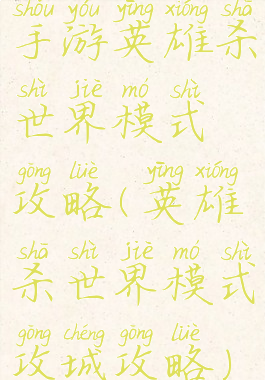 shǒu yóu yīng xióng shā
手游英雄杀
shì jiè mó shì
世界模式
gōng lüè yīng xióng
攻略(英雄
shā shì jiè mó shì
杀世界模式
gōng chéng gōng lüè
攻城攻略)